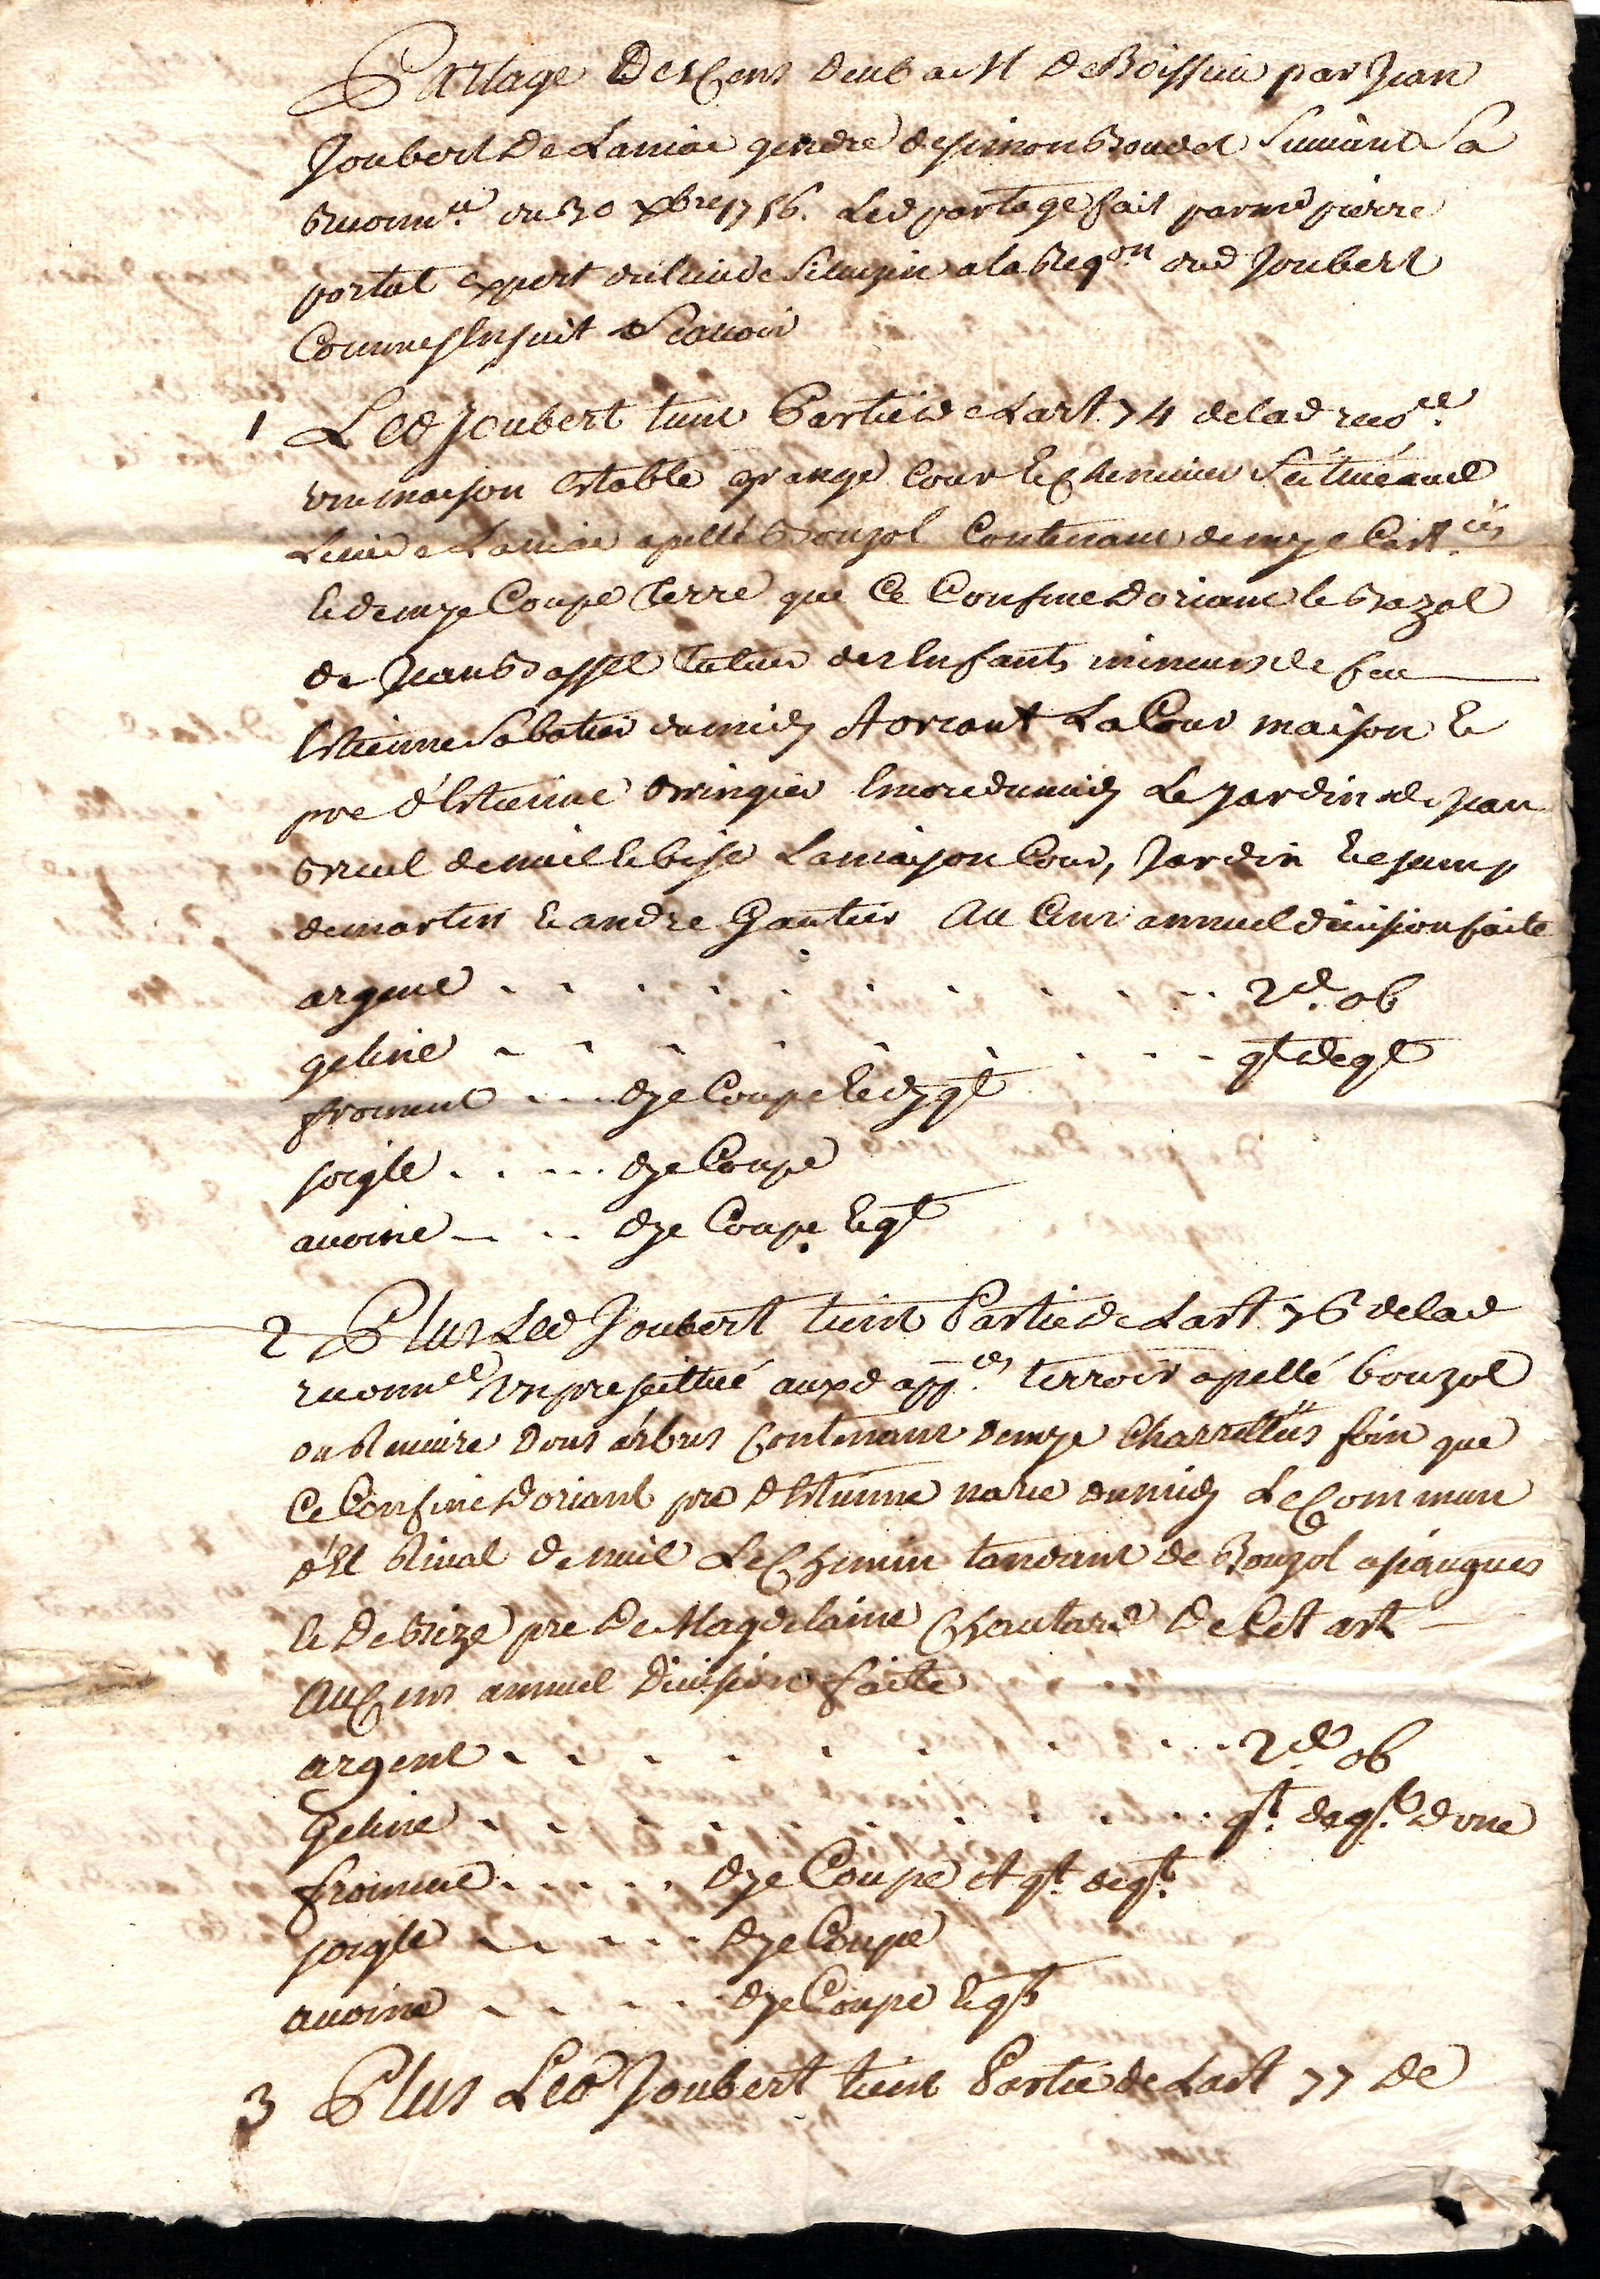 Partage Des Cens deub a M De Boissieu par Jean
Joubert De Laniac gendre de simon Boudet Suivant Sa
Reconn.ce du 30 xbre 1756. Led partage fait par me pierre
portal expert du lieu de a la Reqon dud Joubert
Comme sensuit Scavoir
1 Led Joubert tient Partie de Lart. 74 de lad reco.ce
une maison Estable grange Cour Et Chemin Scitué aud
Lieu de Laniac apellé Bouzol Contenant demye Cart.es
Et demye Coupe Terre que Ce Confine D'oriant le
de Jean Tuteur des Enfants mineurs de feu
Estienne Sabatier du midy & oriant La Cour maison Et
pre d'Estienne Encore du midy Le Jardin de Jean
Breul de nuit Et bise La maison Cour, Jardin Et
de martin Et andre Gautier Au Cens annuel division faite
argent . . . . . . . . . . 2d. ob
geline . . . . . . . . qt de qt
froment . . . . dye Coupe Et dy qt
soigle . . . . . dye Coupe
avoine . . . dye Coupe Et qt
2 Plus Led Joubert tient Partie de Lart. 76 de lad
reconn.ce Un pre scittué auxd app.ces terroir apellé bouzol
ou Riviere Dous arbres Contenant demye Charrettées foin que
Ce Confine D'oriant pre d'Estienne marie du midy Le Commun
dEt Rival de nuit Le Chemin tandant de Bouzol a
Et De Bize pre De Magdelaine Chautard De Cet art
Au Cens annuel Division faite
argent . . . . . . . . . . 2d. ob
Geline . . . . . . . . . . qt. de qt. dune
froment . . . . . dye Coupe et qt. de qt.
soigle . . . . . dye Coupe
avoine . . . . . dye Coupe Et qt
3 Plus Led Joubert tient Partie de Lart 77 de